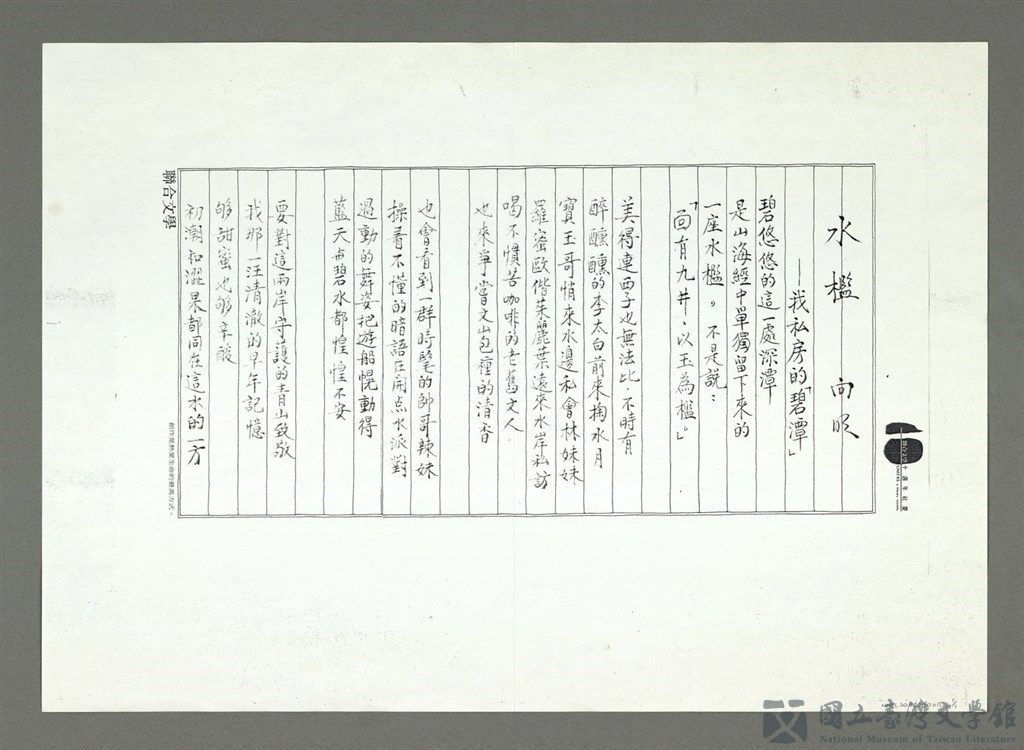 水檻　向明
──我私房的「碧潭」
碧悠悠的這一處深潭
是山海經中單獨留下來的
一座水檻，不是說：
「面有九井，以玉為檻」。
美得連西子也無法比，不時有
醉醺醺的李太白前來掬水月
寶玉哥悄來水邊私會林妹妹
羅密歐偕茱麗葉遠來水岸私訪
喝不慣苦咖啡的老舊文人
也來爭嘗文山包種的清香
也會看到一群時髦的帥哥辣妹
操著不懂的暗語在開点水派對
過動的舞姿把遊船恍動得
藍天与碧水都惶惶不安
要對這兩岸守護的青山致敬
我那一汪清澈的早年記憶
够甜蜜也够辛酸
初潮和澀果都同在這水的一方
聯合文學
創作是熱愛生命的最高方式。
聯合文學十週年社慶
國立臺灣文學館
National Museum of Taiwan Literature